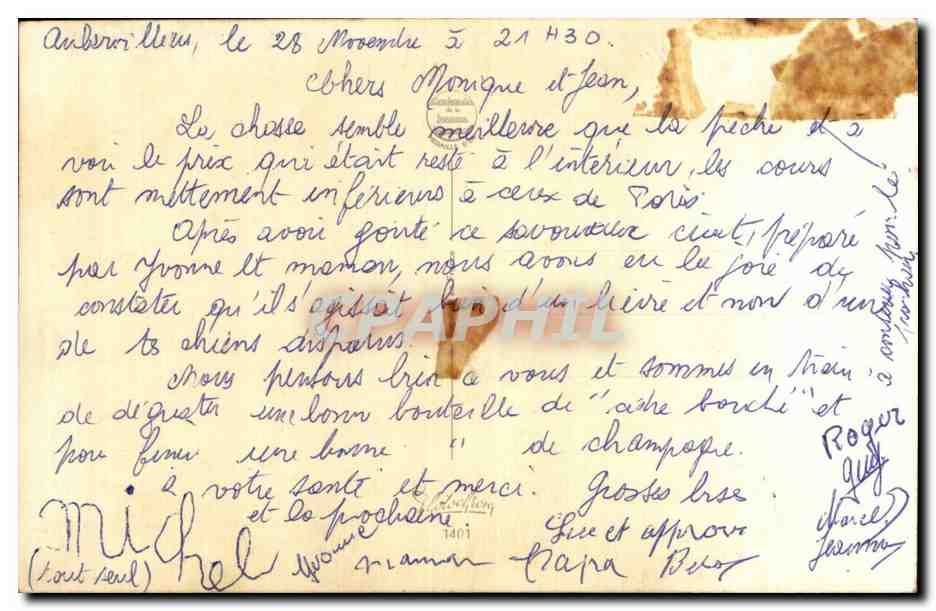 Aubervilliers, le 28 Novembre à 21 H 30.
Chers Monique et Jean,
La chasse semble meilleure que la pêche et à
voir le prix qui était resté à l'intérieur, les cours
sont nettement inférieurs à ceux de Paris
Après avoir gouté ce savoureux civet, préparé
par Yvonne et maman, nous avons eu la joie de
constater qu'il s'agissait bien d'un lièvre et non d'un
de tes chiens disparus.
Nous pensons bien à vous et sommes en train
de déguster une bonne bouteille de "cidre bouché" et
pour finir une bonne " de champagne.
à votre santé et merci. Grosses bises
et la prochaine
Lu et approuvé
Michel
(tout seul)
Yvonne maman Papa
Roger
Guy
Marcel
Jeannine
1401
CPAPHIL